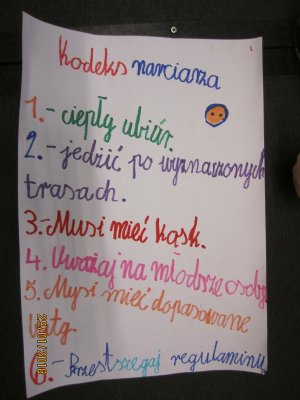 Kodeks narciarza
1.- ciepły ubiór.
2.- jeździć po wyznaczonych
trasach.
3.- Musi mieć kask.
4. Uważaj na młodrze osoby
5. Mysi mieć dopasowane
6.- Przestszegaj regulaminu